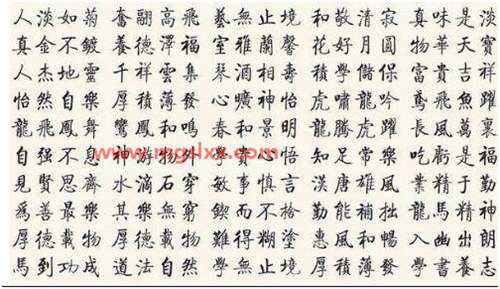 人淡如菊 奮翮高飛 藝無止境 和敬清寂 真味是淡
真金不鍍 養德澤福 室雅蘭馨 花好月圓 物華天寶
人杰地靈 千祥雲集 琴酒相壽 積學儲保 富貴吉祥
怡然自樂 厚積薄發 心曠神怡 虎嘯龍吟 鳶飛魚躍
龍飛鳳舞 鸞鳳和鳴 春和景明 龍騰虎躍 長風萬裏
自强不息 神游物外 悟 知足常樂 吃虧是福
見賢思齊 水滴石穿 敏事慎言 漢唐雄風 業精于勤
爲善最樂 其樂無窮 鍥而不捨 勤能補拙 龍馬精神
厚德載物 厚德載物 難得糊塗 惠風和暢 入幽出朗
馬到功成 道法自然 學無止境 厚積薄發 學書養志
www.mgslxx.com